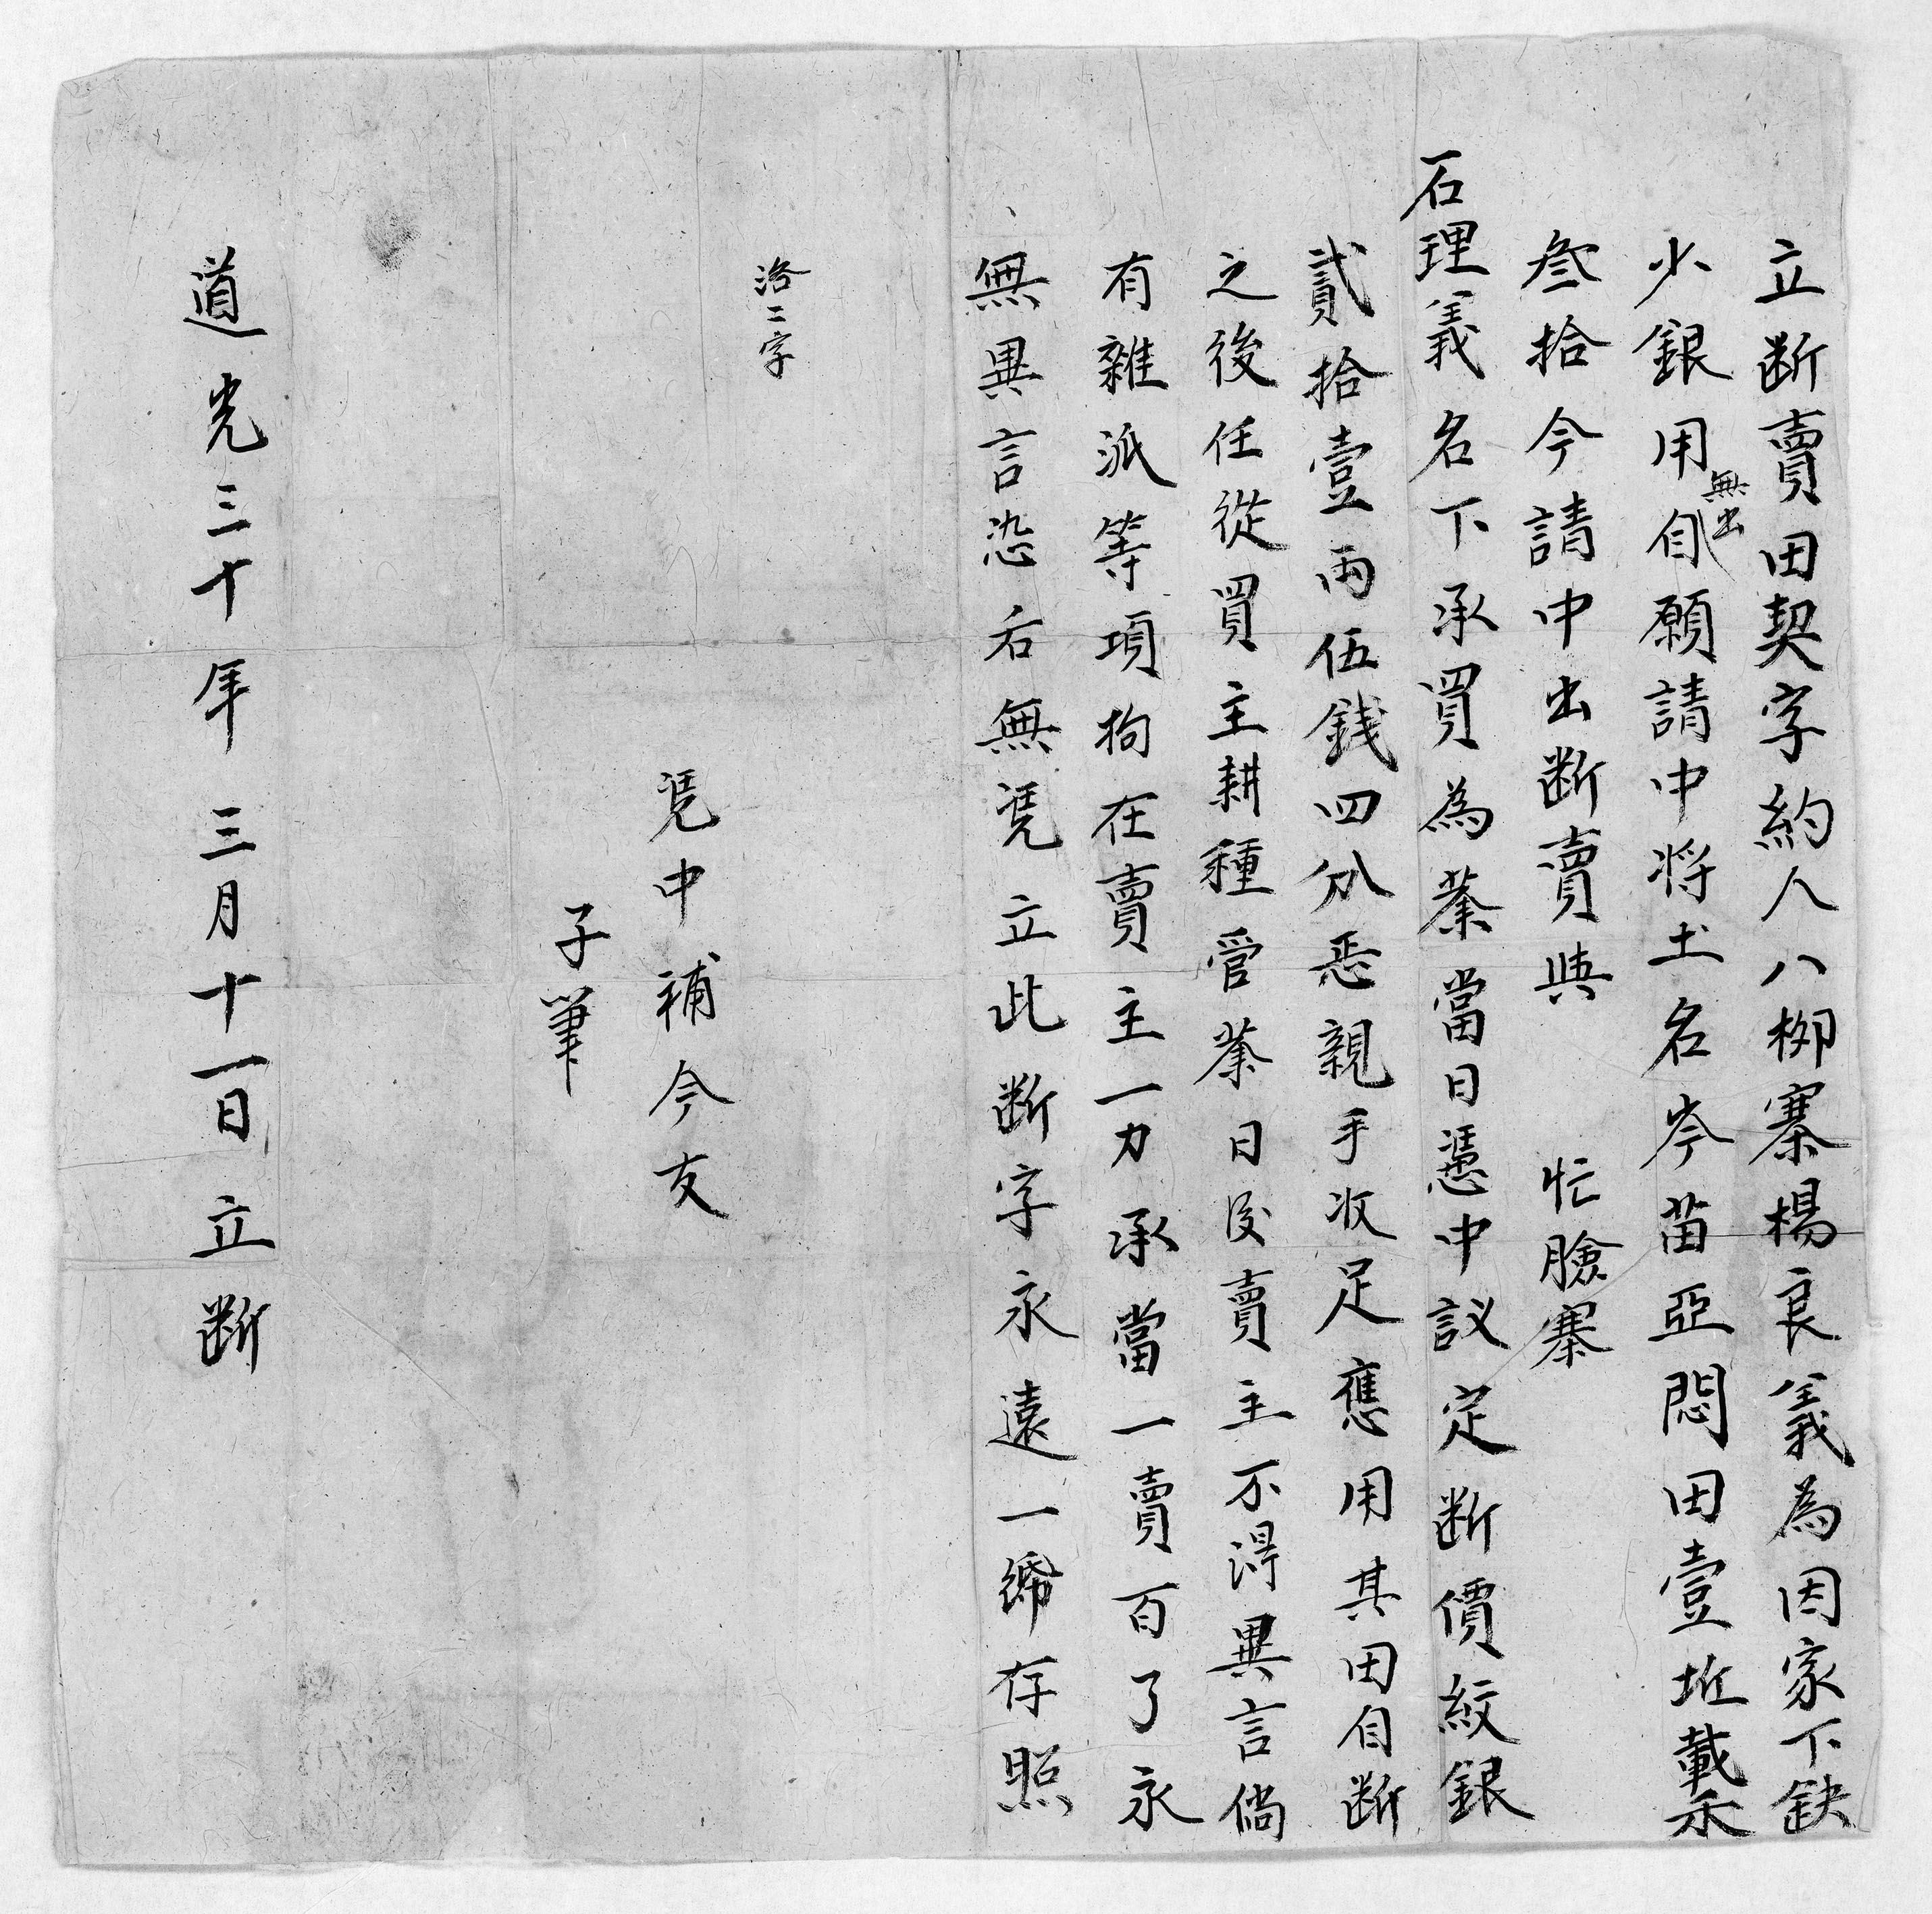 立断賣田契字約人八柳寨楊良義為因家下缺
少銀用無出自願請中将土名岑苗亞悶田壹坵載禾
叁拾今請中出断賣與　忙臉寨
石理義名下承買為業當日憑中議定断價紋銀
貳拾壹両伍錢四分悉親手收足應用其田自断
之後任從買主耕種管業日後賣主不得異言倘
有雜派等項拘在賣主一力承當一賣百了永
無異言恐后無凭立此断字永遠一帋存照
洛二字
凭中補今友
子筆
道光三十年三月十一日立断